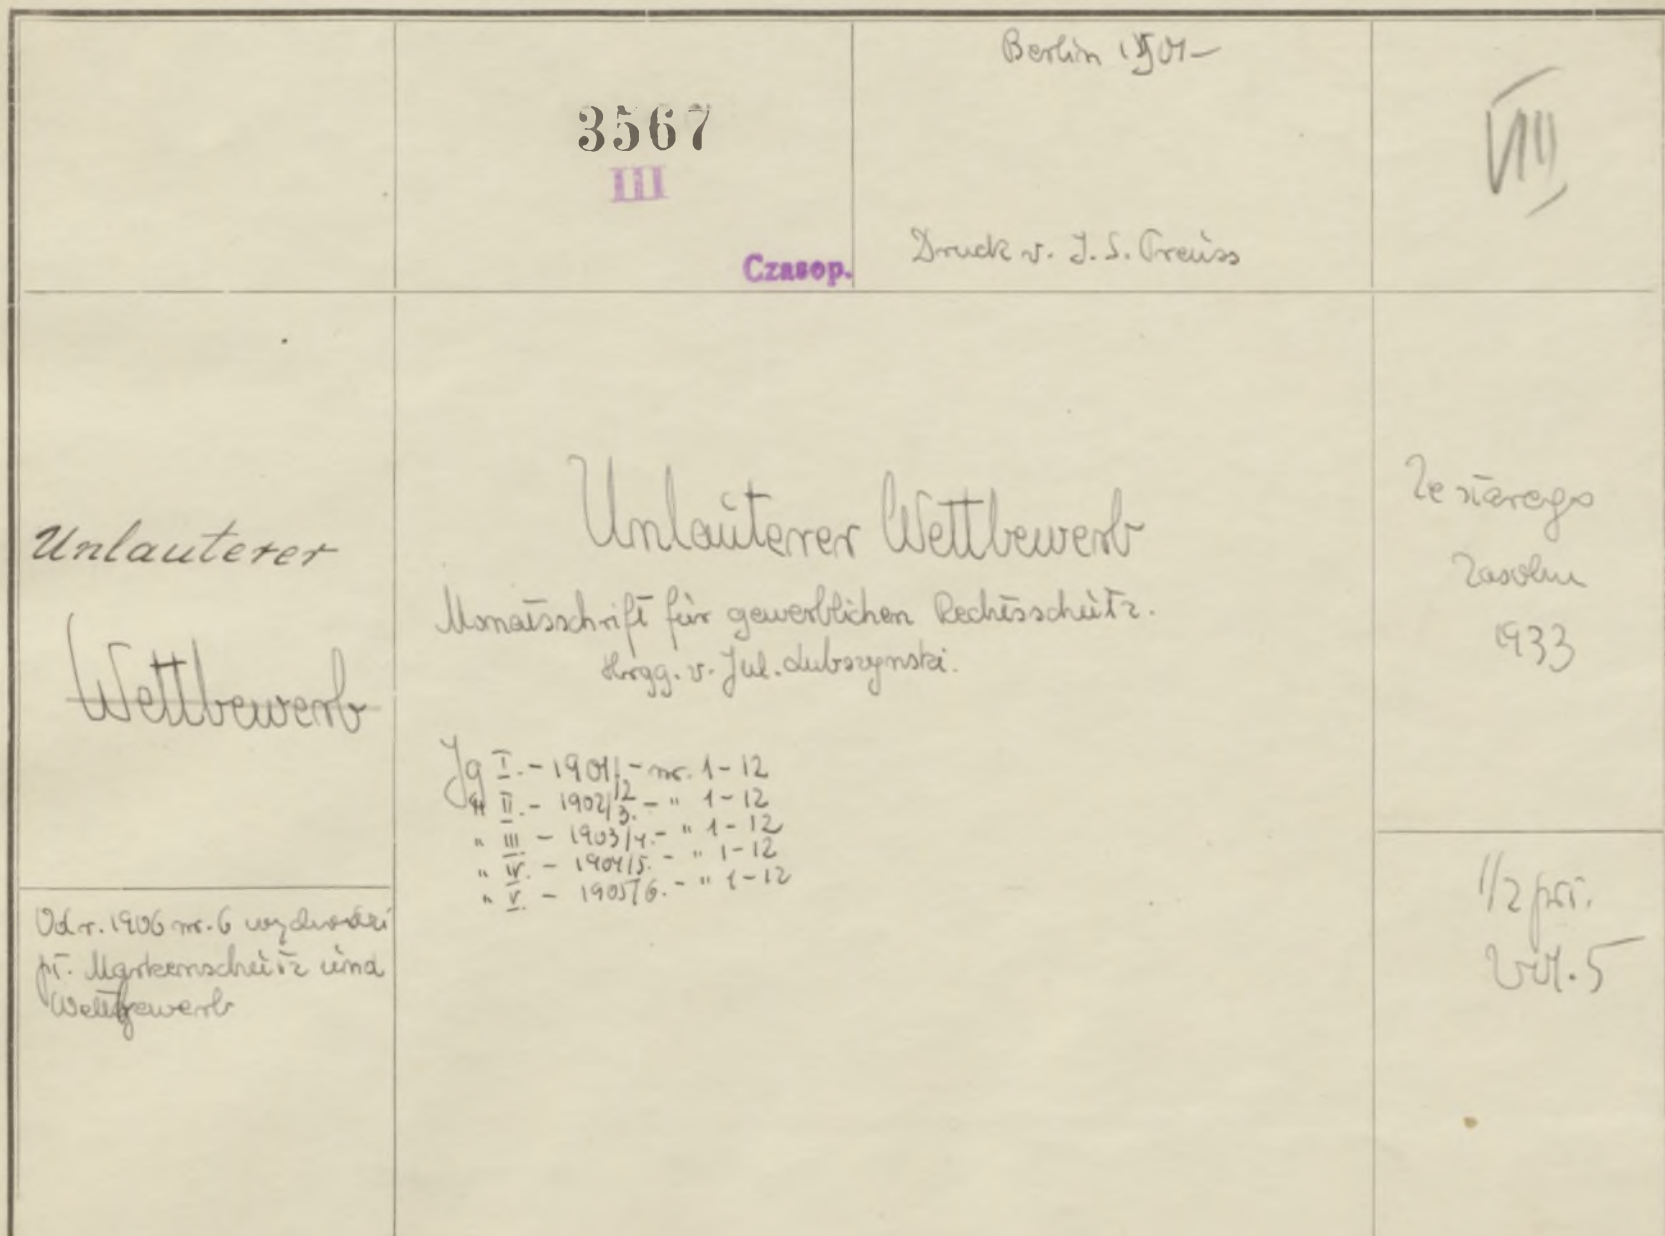 3567
III
Czasop.
Berlin 1901-
Druck v. J. S. Preuss
VIII
Unlauterer
Wettbewerb
Unlauterer Wettbewerb
Monatsschrift für gewerblichen Rechtsschutz.
Hrgg. v. Jul. Lubszynski.
Jg I. - 1901/2 - nr. 1-12
" II. - 1902/3. - " 1-12
" III - 1903/4. - " 1-12
" IV. - 1904/5. - " 1-12
" V. - 1905/6. - " 1-12
Ze starego
zasobu
1933
Od r. 1906 nr. 6 wychodzi
pt. Markenschutz und
Wettbewerb
1/2 pł.
vol. 5